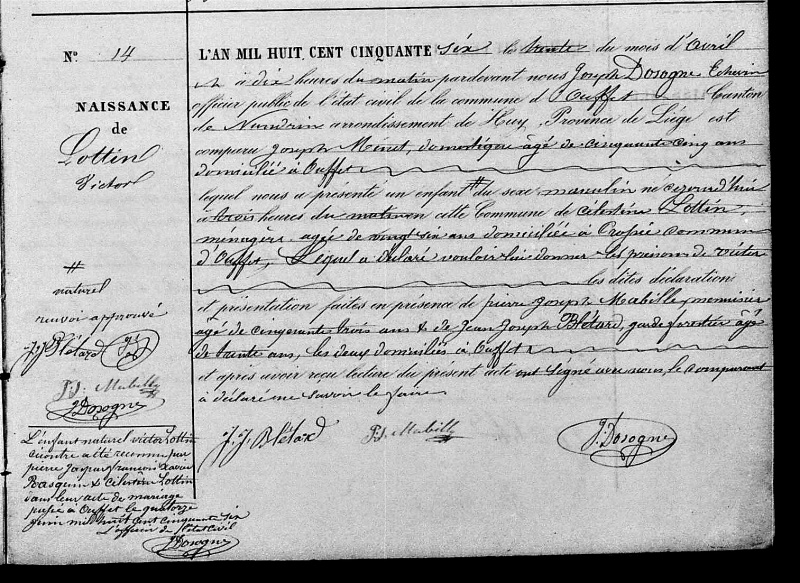 N° 14
NAISSANCE
de
Lottin
Victor
#
naturel
renvoi approuvé
J.J. Blétard
P.J. Mabille
J. Dosogne
L'enfant naturel victor Lottin
ci contre a été reconnu par
pierre Gaspar françois Xavier
Rasquin & Célestine Lottin
dans leur acte de mariage
passé à Ouffet le quatorze
juin mil huit cent cinquante six
L'officier de l'état civil
J. Dosogne
L'AN MIL HUIT CENT CINQUANTE six le trente du mois d'avril
à dix heures du matin pardevant nous Joseph Dosogne Echevin
officier public de l'état civil de la commune d'Ouffet Canton
de Nandrin arrondissement de Huy, Province de Liége est
comparu Joseph Minet, domestique âgé de cinquante cinq ans
domicilié à Ouffet
lequel nous a présenté un enfant # du sexe masculin né cejourd'hui
à trois heures du matin en cette Commune de Célestine Lottin,
ménagère, agée de vingt six ans domiciliée à commune
d'Ouffet, Lequel a déclaré vouloir lui donner les prénoms de victor
les dites déclaration
et présentation faites en présence de pierre Joseph Mabille menuisier
agé de cinquante trois ans & de Jean Joseph Blétard, garde forestier âgé
de trente ans, les deux domiciliés à Ouffet
et après avoir reçu lecture du présent acte ont signé avec nous, le comparant
a déclaré ne savoir le faire
J.J. Blétard P.J. Mabille J. Dosogne